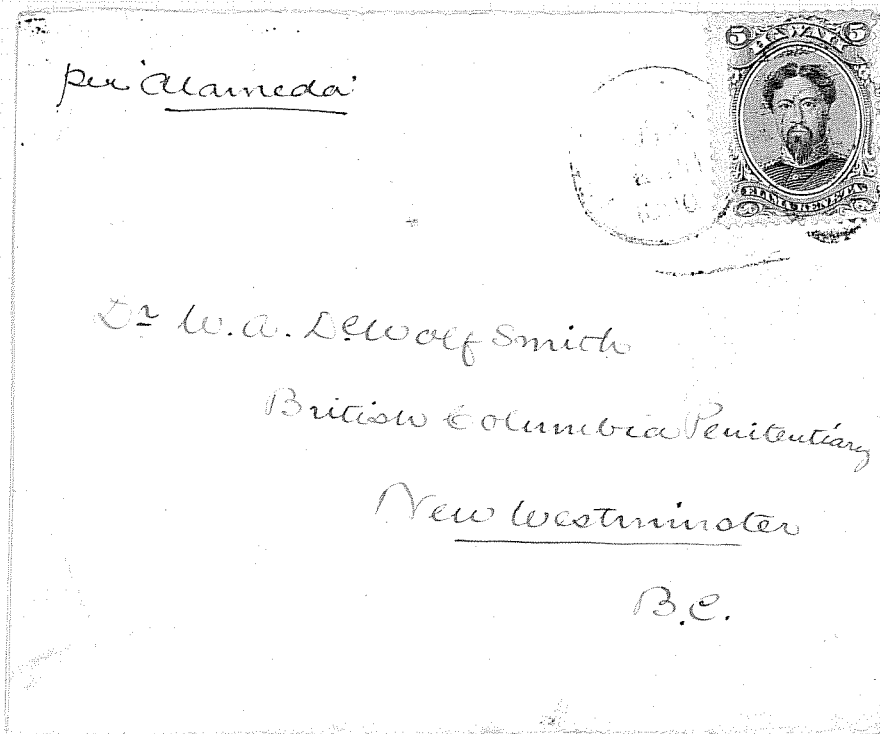 per 'Alameda'
5 5
Dr W. A. DeWolf Smith
British Columbia Penitentiary
New Westminster
B.C.